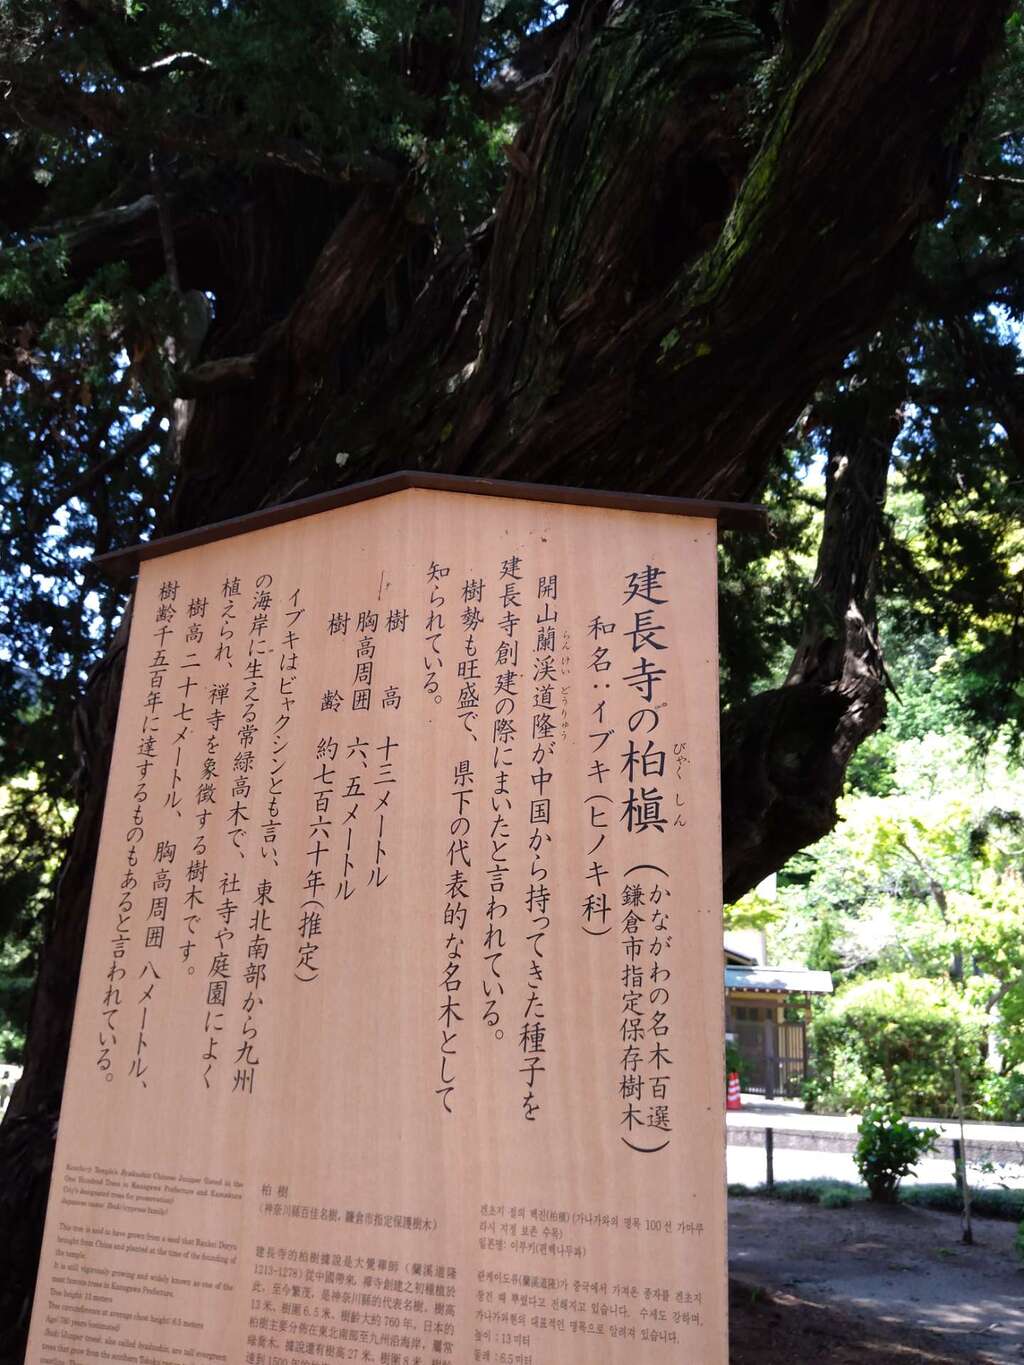 建長寺の柏槇
びゃくしん
（かながわの名木百選
鎌倉市指定保存樹木）
和名：イブキ（ヒノキ科）
開山蘭渓道隆が中国から持ってきた種子を
らんけいどうりゅう
建長寺創建の際にまいたと言われている。
樹勢も旺盛で、県下の代表的な名木として
知られている。
樹高 十三メートル
胸高周囲 六、五メートル
樹齢 約七百六十年（推定）
イブキはビャクシンとも言い、東北南部から九州
の海岸に生える常緑高木で、社寺や庭園によく
植えられ、禅寺を象徴する樹木です。
樹高二十七メートル、胸高周囲八メートル、
樹齢千五百年に達するものもあると言われている。
Kencho-ji Temple's Byakushin Chinese Juniper (listed in the
One Hundred Trees in Kanagawa Prefecture and Kamakura
City's designated trees for preservation)
Japanese name: Ibuki (cypress family)
This tree is said to have grown from a seed that Rankei Doryu
brought from China and planted at the time of the founding of
the temple.
It is still vigorously growing and widely known as one of the
most famous trees in Kanagawa Prefecture.
Tree height: 13 meters
Tree circumference at average chest height: 6.5 meters
Age: 760 years (estimated)
Ibuki
柏樹
（神奈川縣百佳名樹，鎌倉市指定保護樹木）
建長寺的柏樹據說是大覺禪師（蘭溪道隆
1213-1278）從中國帶來，禪寺創建之初種植於
此，至今繁茂，是神奈川縣的代表名樹。樹高
13 米、樹圍 6.5 米、樹齡大約 760 年。日本的
柏樹主要分佈在東北南部至九州沿海岸，屬常
綠喬木。據說還有樹高 27 米、樹圍 8 米、
達到 1500 年的
겐초지 절의 백진(柏槇) (가나가와의 명목 100선 가마쿠
라시 지정 보존 수목)
일본명: 이부키(편백나무과)
란케이도류(蘭溪道隆)가 중국에서 가져온 종자를 겐초지
창건 때 뿌렸다고 전해지고 있습니다. 수세도 강하며,
가나가와현의 대표적인 명목으로 알려져 있습니다.
높이 : 13 미터
둘레 : 6.5 미터